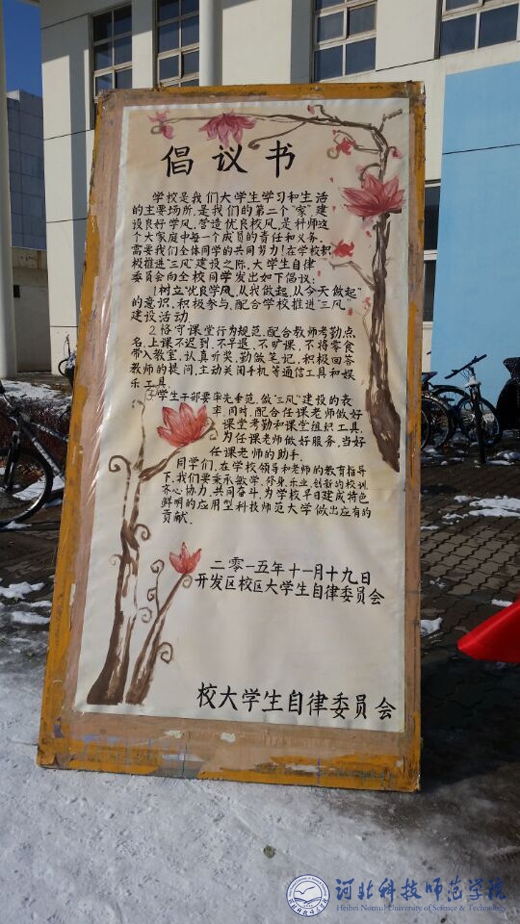 倡议书
学校是我们大学生学习和生活
的主要场所,是我们的第二个“家”,建
设良好学风,营造优良校风,是科师这
个大家庭中每一个成员的责任和义务。
需要我们全体同学的共同努力!在学校积
极推进“三风”建设之际,大学生自律
委员会向全校同学发出如下倡议:
1.树立“优良学风,从我做起,从今天做起”
的意识,积极参与、配合学校推进“三风”
建设活动。
2.恪守课堂行为规范,配合教师考勤点
名,上课不迟到、不早退、不旷课、不将零食
带入教室,认真听奖,勤做笔记,积极回答
教师的提问,主动关闭手机等通信工具和娱
乐工具。
3.学生干部要率先垂范,做“三风”建设的表
率,同时,配合任课老师做好
课堂考勤和课堂组织工具,
为任课老师做好服务,当好
任课老师的助手。
同学们,在学校领导和老师的教育指导
下,我们要秉承敬学、修身、乐业、创新的校训
齐心协力,共同奋斗,为学校早日建成特色
鲜明的应用型科技师范大学做出应有的
贡献。
二零一五年十一月十九日
开发区校区大学生自律委员会
校大学生自律委员会
河北科技师范学院
Heibei Normal University of Science & Technology